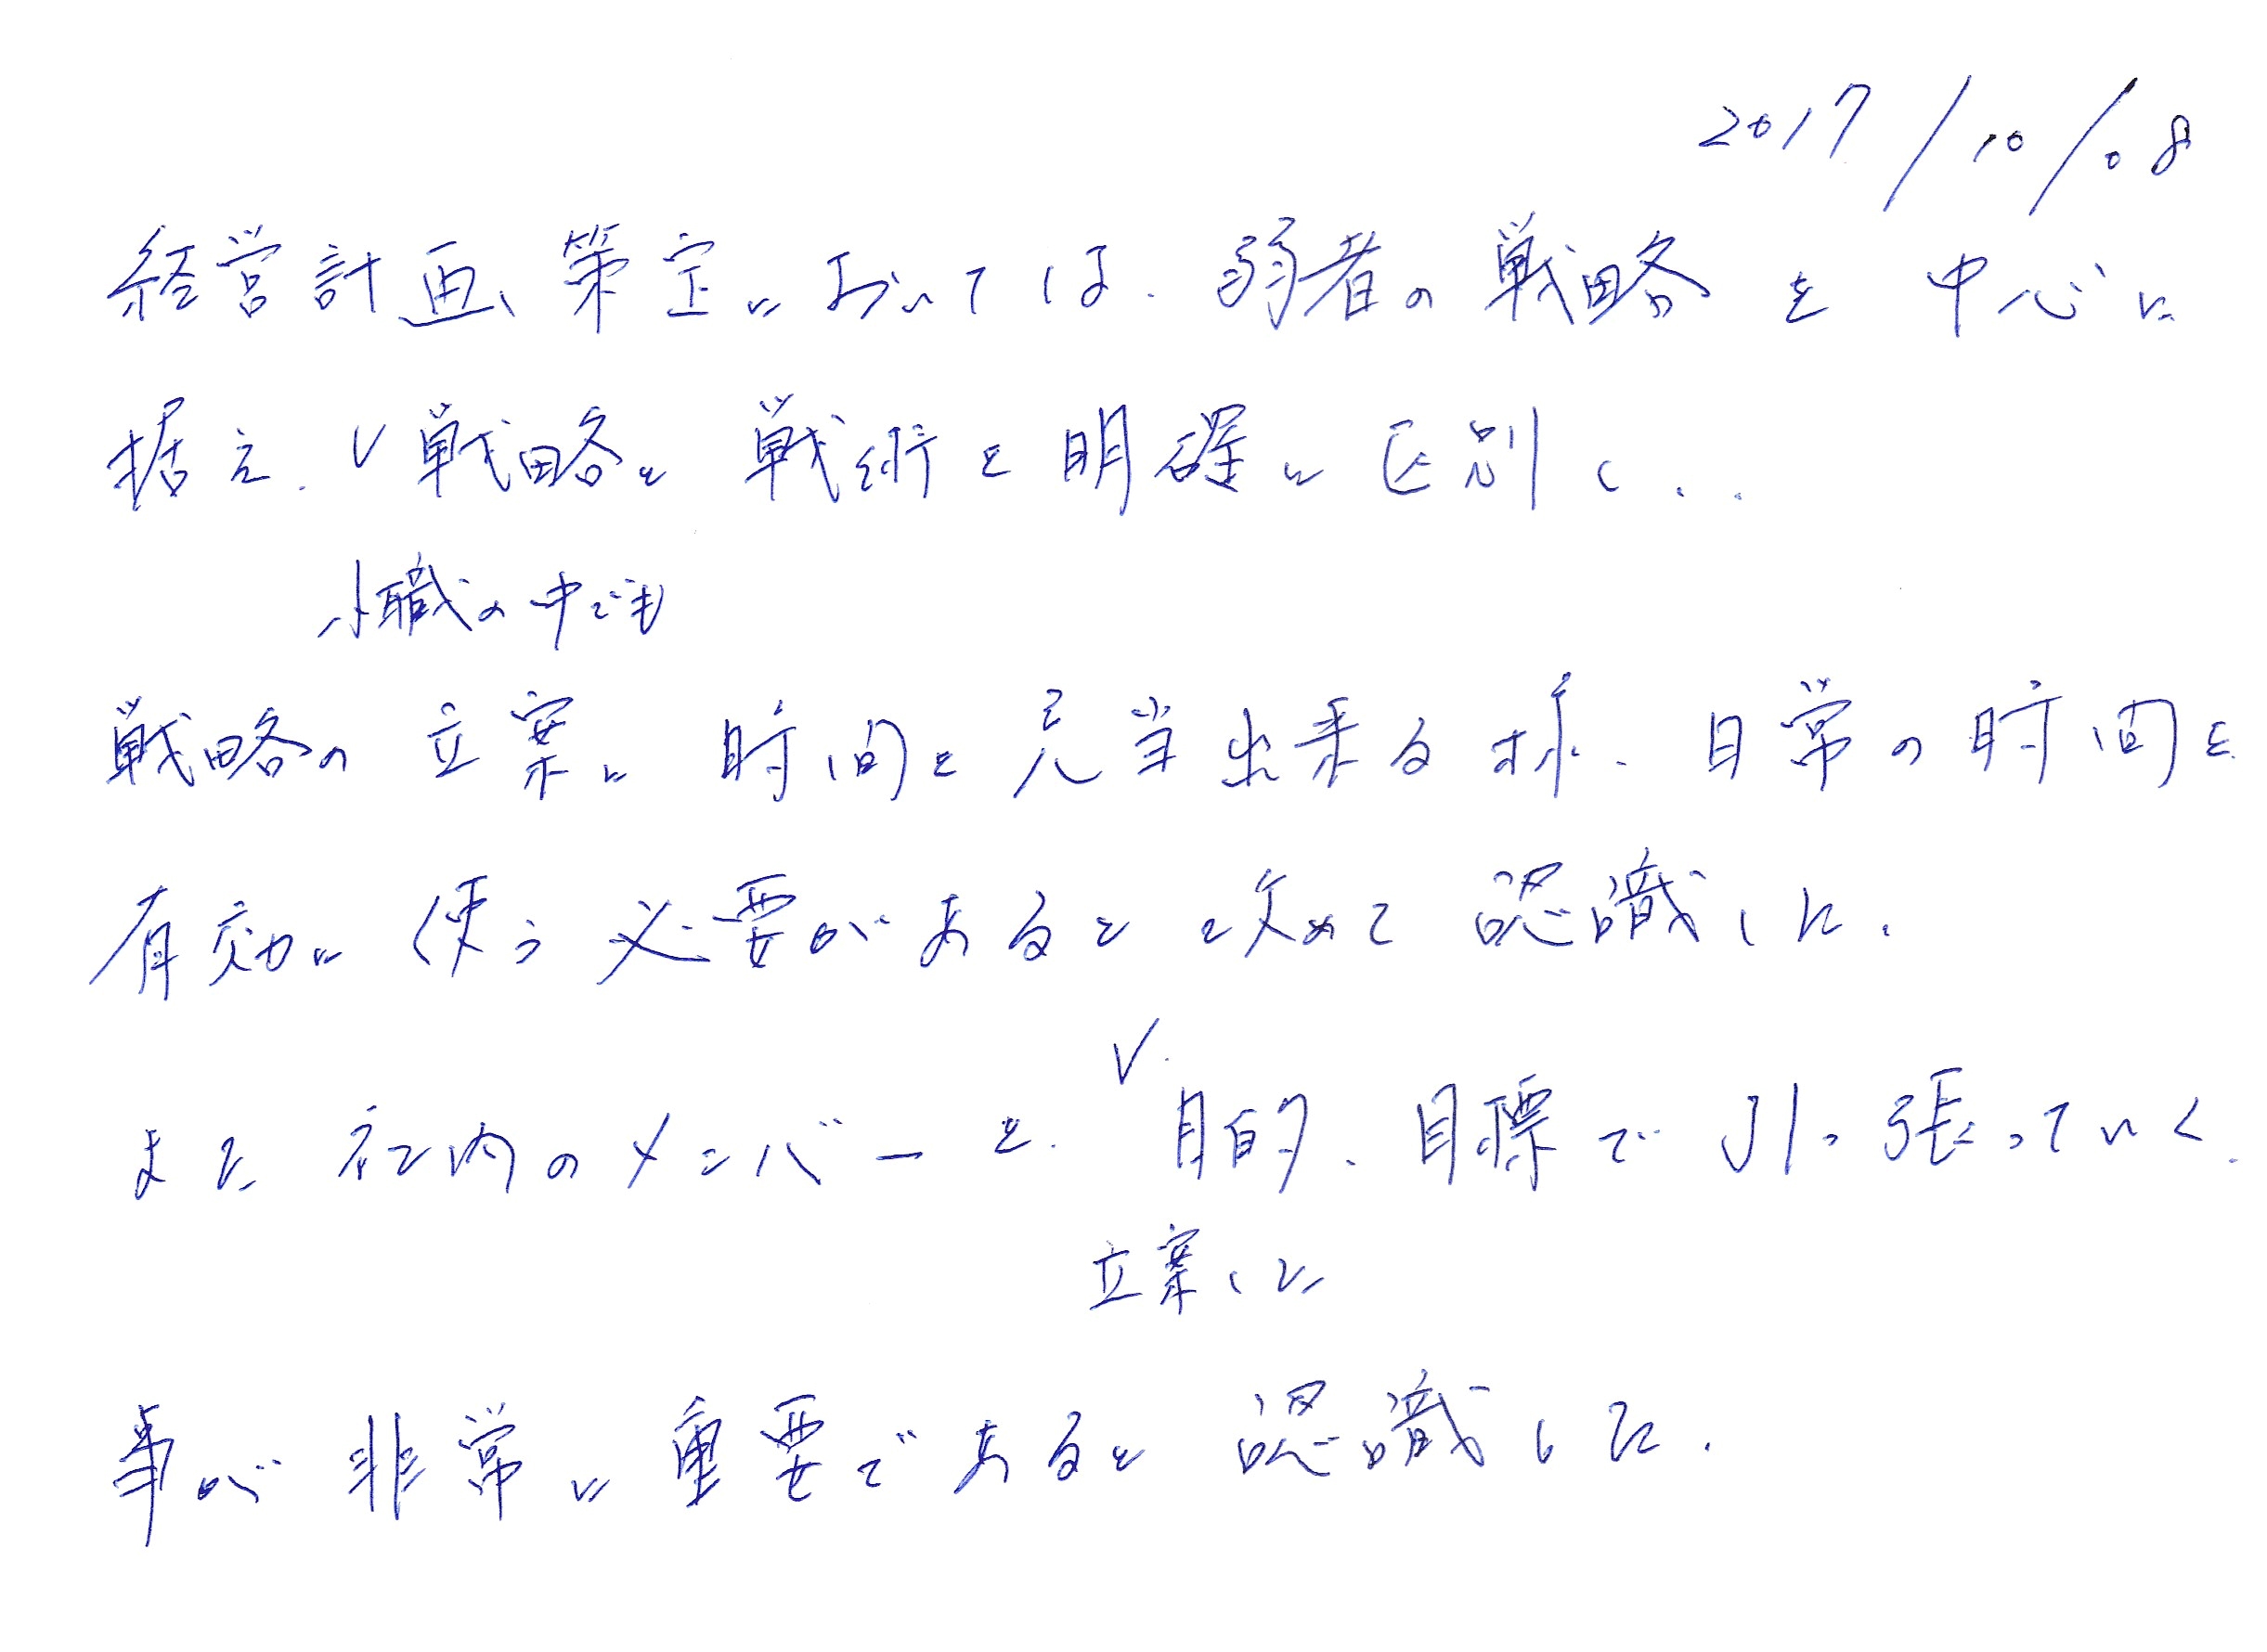 2017/10/08
経営計画、策定においては、弱者の戦略を中心に
据え、✓戦略と戦術を明確に区別し、、
小職の中でも
戦略の立案に時間を充当出来る様、日常の時間を
有効に使う必要があると改めて認識した。
また社内のメンバーを、✓目的、目標で引っ張っていく
立案した
事が非常に重要であると認識した。